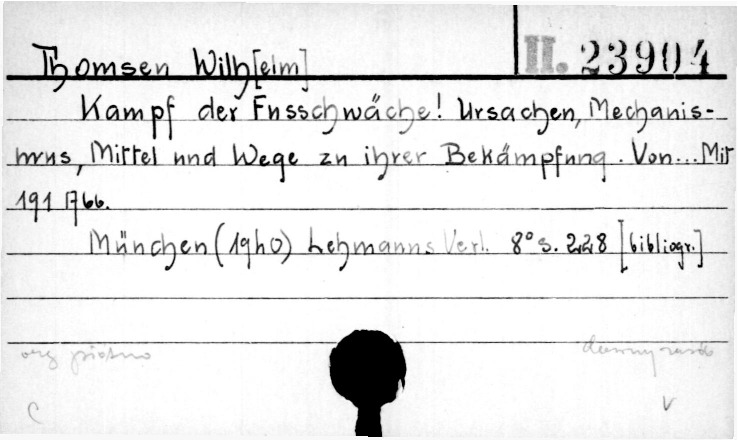 II. 23904
Thomsen Wilh[elm]
Kampf der Fussschwäche! Ursachen, Mechanis-
mus, Mittel und Wege zu ihrer Bekämpfung. Von... Mit
191 Abb.
München (1940) Lehmanns Verl. 8° S. 228 [bibliogr.]
C
V